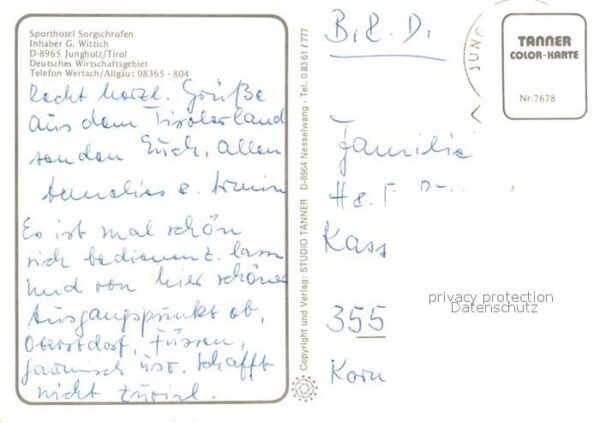 Sporthotel Sorgschrofen
Inhaber G. Wittich
D-8965 Jungholz/Tirol
Deutsches Wirtschaftsgebiet
Telefon Wertach/Allgäu: 08365 - 804
Recht herzl. Grüße
aus dem Tirolerland
senden Euch, allen
Es ist mal schön
sich bedienen z. lassen
und von hier schöner
Ausgangspunkt ob,
Oberstdorf, Füssen,
Garmisch usw. schafft
nicht zuviel.
Copyright und Verlag: STUDIO TANNER D-8964 Nesselwang - Tel. 0 83 61 / 777
B.R.D.
JUNG
TANNER
COLOR-KARTE
Nr. 7678
Familie
Kass
355
Korn
privacy protection
Datenschutz